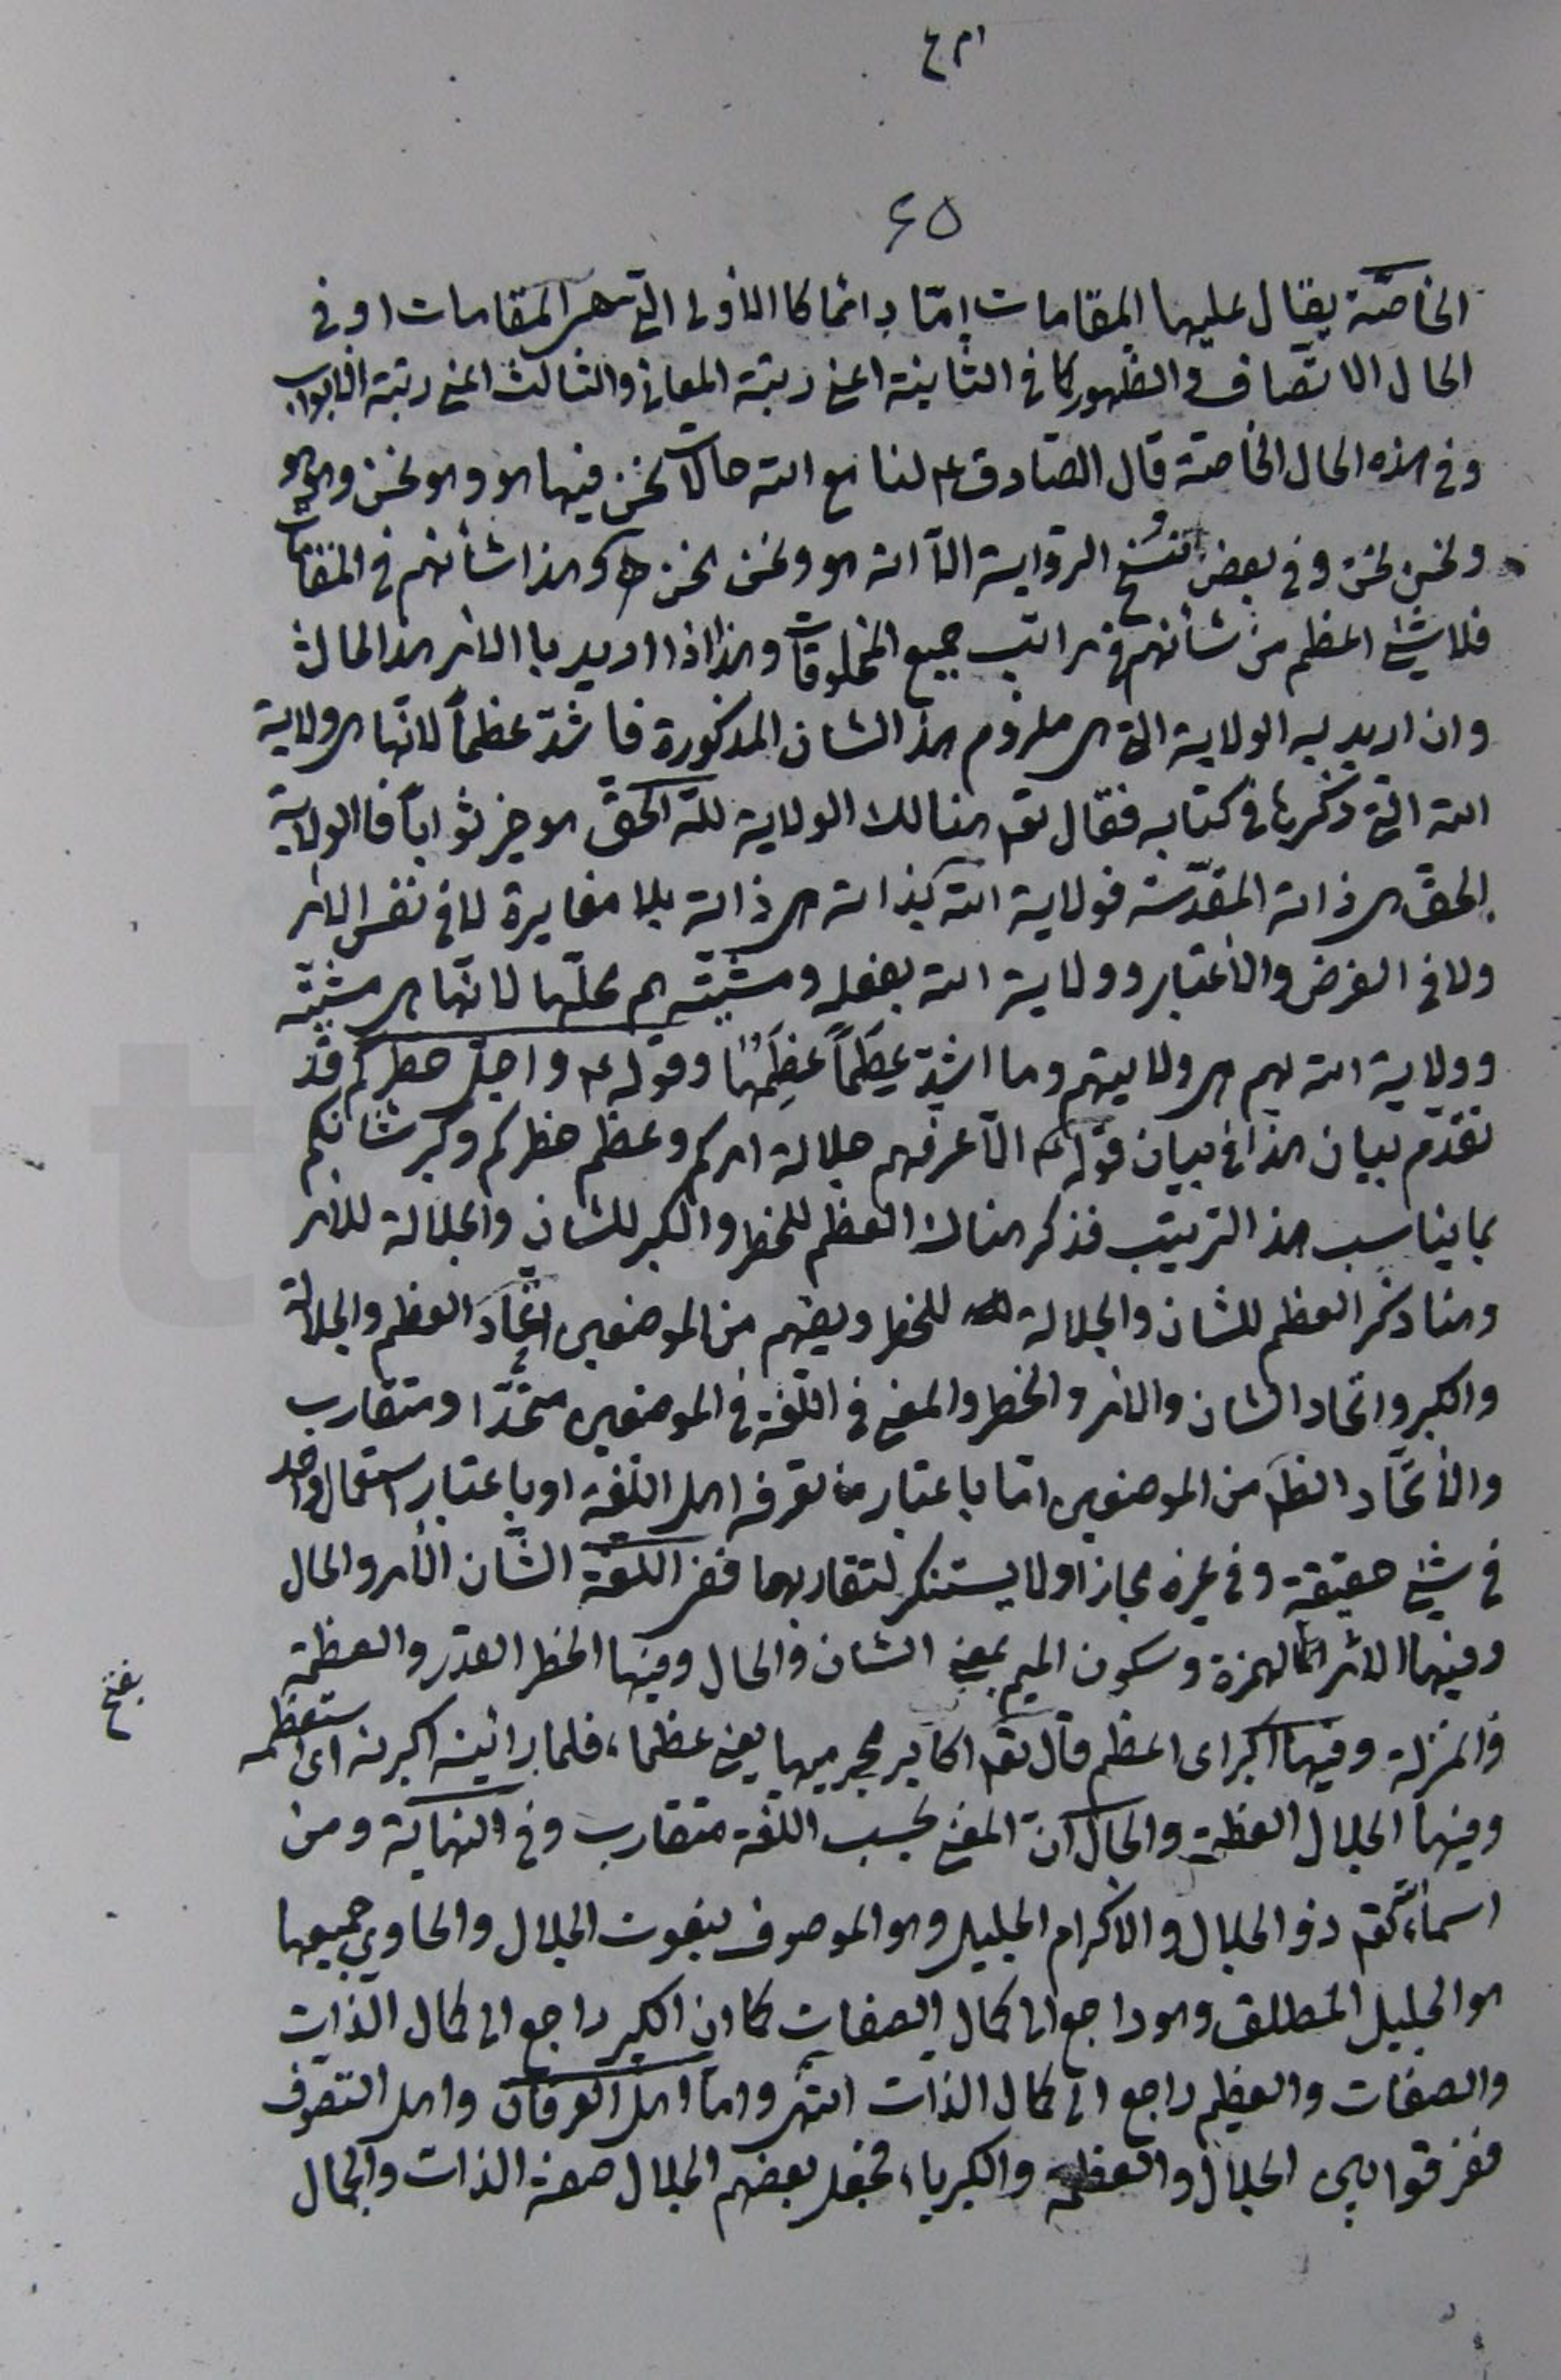 ٦٥
الخاصّة يقال عليها المقامات إمّا دائما كالأولى التي هي المقامات او في
الحال الاتّصاف والظهور كما في الثانية اعني رتبة المعاني والثالث اعني رتبة الابواب
وفي هذه الحال الخاصّة قال الصّادق ع لنا مع الله حالات نحن فيها هو وهو نحن وهو هو
ونحن نحن وفي بعض نسخ الرّواية الّا انه هو ونحن نحن وهذا شأنهم في المقامات
فلا شيئ اعظم من شأنهم في مراتب جميع المخلوقات وهذا اذا اريد بالامر هذ الحالة
وان اريد به الولاية التي هي ملزوم هذ الشان المذكورة فاشدّ عظماً لانّها هي ولاية
الله التي ذكرها في كتابه فقال تع هنالك الولاية للّه الحقّ هو خير ثواباً فالولاية
الحقّ هي ذاته المقدّسة فولاية الله بذاته هي ذاته بلا مغايرة لا في نفس الامر
ولا في الفرض والاعتبار وولاية الله بفعله ومشيّته هم محلّها لانّها هي مشيّته
وولاية الله بهم هي ولايتهم وما اشدّ عِظَماً عظّمها وقوله ع واجلّ خطركم قد
تقدّم بيان هذا في بيان قوله ع الّا عرفهم جلالة امركم وعظم خطركم وكبر شانكم
بما يناسب هذ الترتيب فذكر هناك العظم للخطر والكبر للشان والجلالة للامر
وهنا ذكر العظم للشان والجلالة للخطر ويفهم من الموضعين اتّحاد العظم والجلالة
والكبر واتحاد الشان والامر والخطر والمعنى في اللّغة في الموضعين متّحدا ومتقارب
والأتّحاد الظم من الموضعين امّا باعتبار ما تعرفه اهل اللّغة او باعتبار استعمال واحد
في شيئ حقيقة وفي غيره مجازا ولا يستنكر لتقاربهما ففي اللّغة الشّان الأمر والحال
وفيها الامر الهمزة وسكون الميم بمعنى الشان والحال وفيها الخطر القدر والعظمة
بفتح
والمنزلة وفيها اكبر اى اعظم قال تع اكابر مجرميها يعني عظماء، فلما راينه اكبرنه اى استعظمه
وفيها الجلال العظمة والحال انّ المعنى بحسب اللّغة متقارب وفي النهاية ومن
اسمائه تع ذو الجلال والاكرام الجليل وهو الموصوف بنعوت الجلال والحاوي جميعها
هو الجليل المطلق وهو راجع الى كمال الصفات كما ان الكبير راجع الى كمال الذّات
والصفات والعظيم راجع الى كمال الذات انتهى وامّا اهل العرفان واهل التصوّف
ففرقوا بين الجلال والعظمة والكبرياء، فجعل بعضهم الجلال صفة الذات والجمال